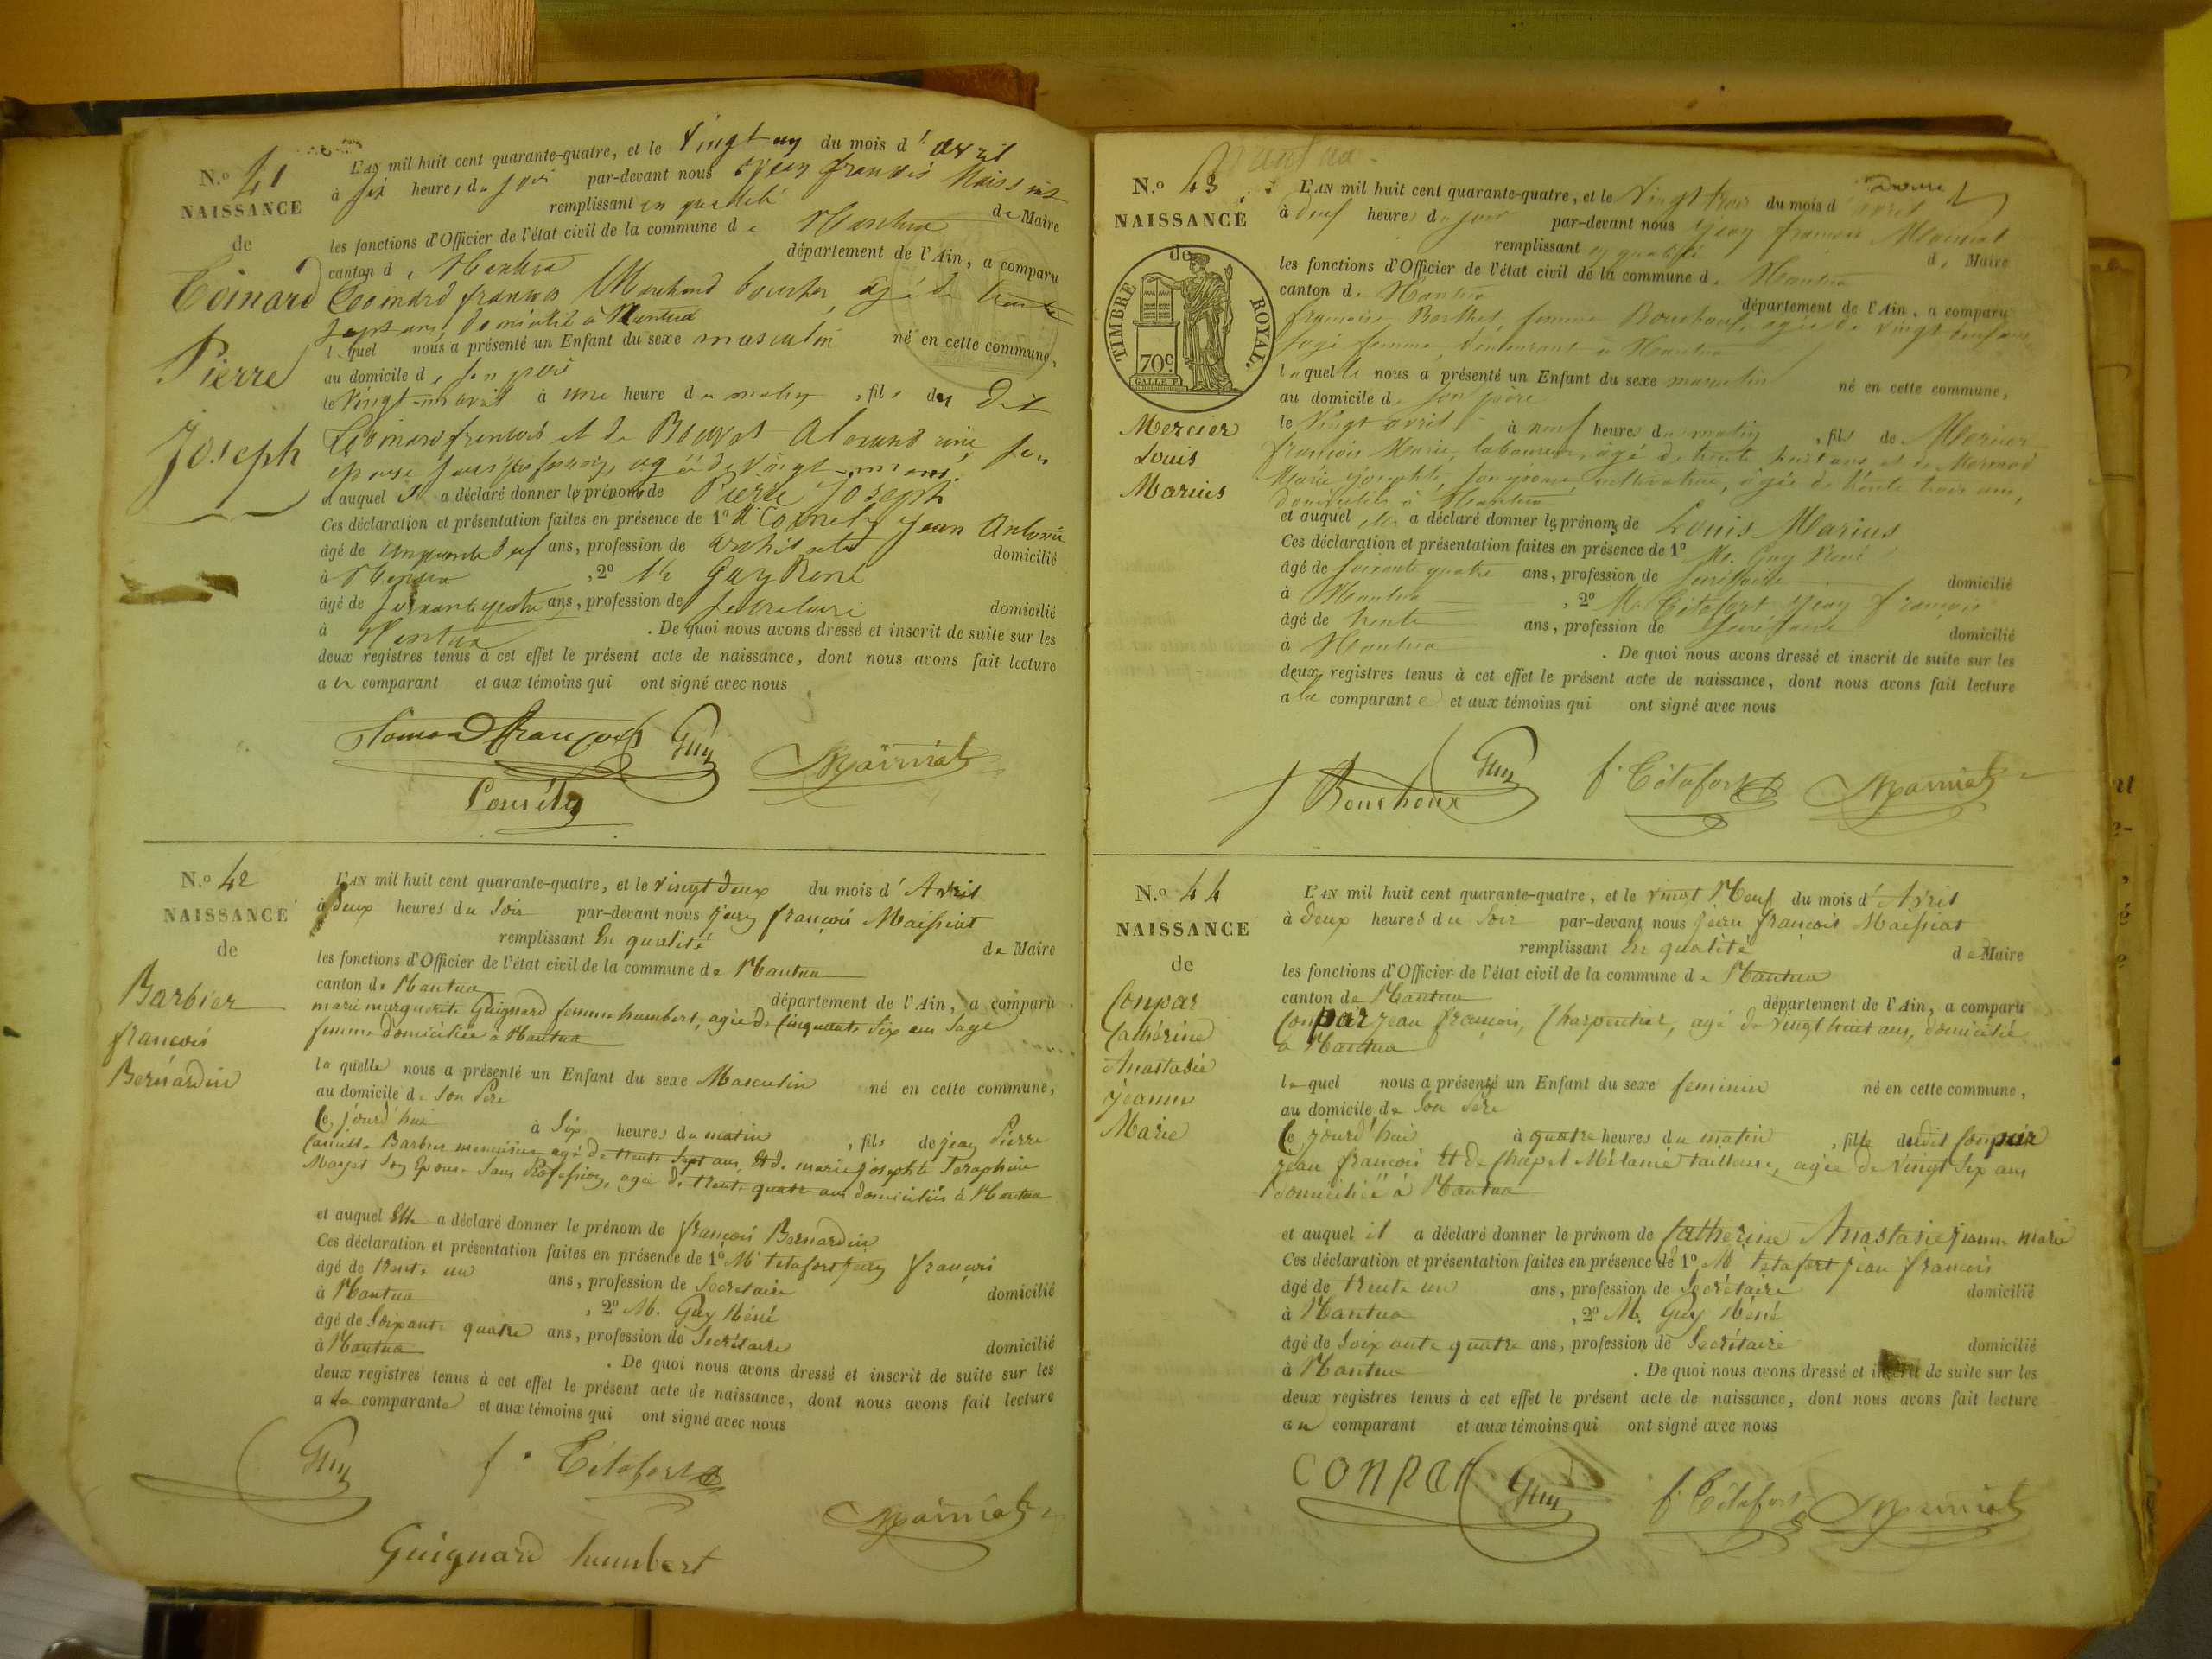 N.o 41
NAISSANCE
de
Coinard
Pierre
Joseph
L'AN mil huit cent quarante-quatre, et le vingt-un du mois d' avril
à six heures du soir par-devant nous Jean françois Maissiat
remplissant en qualité de Maire
les fonctions d'Officier de l'état civil de la commune de Nantua
canton de Nantua département de l'Ain, a comparu
Coinard françois Marchand boucher, âgé de trente
sept ans, domicilié à Nantua
lequel nous a présenté un Enfant du sexe masculin né en cette commune,
au domicile de son père
le vingt-un avril à une heure du matin, fils du dit
Coinard françois et de son
épouse sans profession, agée de vingt
et auquel il a déclaré donner les prénoms de Pierre Joseph
Ces déclaration et présentation faites en présence de 1o M Jean Antoine
âgé de cinquante neuf ans, profession de architecte domicilié
à Nantua, 2o M Guy René
âgé de soixante quatre ans, profession de secrétaire domicilié
à Nantua. De quoi nous avons dressé et inscrit de suite sur les
deux registres tenus à cet effet le présent acte de naissance, dont nous avons fait lecture
au comparant et aux témoins qui ont signé avec nous
françois Guy Maissiat
N.o 42
NAISSANCE
de
Barbier
françois
Bernardin
L'AN mil huit cent quarante-quatre, et le vingt deux du mois d' Avril
à deux heures du soir par-devant nous jean françois Maissiat
remplissant en qualité de Maire
les fonctions d'Officier de l'état civil de la commune de Nantua
canton de Nantua département de l'Ain, a comparu
marie marguerite Guignard femme humbert, agée de cinquante six ans sage
femme domiciliée à Nantua
laquelle nous a présenté un Enfant du sexe Masculin né en cette commune,
au domicile de son Père
Ce jourd'hui à six heures du matin, fils de jean Pierre
Camille Barbier menuisier agé de trente sept ans, Et de marie josephte Séraphine
Mayet son Epouse sans Profession, agée de trente quatre ans domiciliés à Nantua
et auquel Elle a déclaré donner le prénom de françois Bernardin
Ces déclaration et présentation faites en présence de 1o M tétafort jean françois
âgé de trente un ans, profession de Secrétaire domicilié
à Nantua, 2o M. Guy Réné
âgé de soixante quatre ans, profession de Secrétaire domicilié
à Nantua. De quoi nous avons dressé et inscrit de suite sur les
deux registres tenus à cet effet le présent acte de naissance, dont nous avons fait lecture
a la comparante et aux témoins qui ont signé avec nous
Guy f. Tétafort
Maissiat
Guignard humbert
N.o 43
NAISSANCE
de
TIMBRE ROYAL
70c
Mercier
Louis
Marius
L'AN mil huit cent quarante-quatre, et le vingt trois du mois d' avril
à neuf heures du jour par-devant nous Jean françois Maissiat
remplissant en qualité de Maire
les fonctions d'Officier de l'état civil de la commune de Nantua
canton de Nantua département de l'Ain, a comparu
françoise Berthet, femme Bouchoux, agée de vingt neuf ans,
sage femme, demeurant à Nantua
laquelle nous a présenté un Enfant du sexe masculin né en cette commune,
au domicile de son père
le vingt avril à neuf heures du matin, fils de Mercier
françois Marie, laboureur, agé de trente huit ans, et de Mermod
Marie Josephte, son épouse, cultivatrice, âgée de trente trois ans,
domiciliés à Nantua
et auquel elle a déclaré donner les prénoms de Louis Marius
Ces déclaration et présentation faites en présence de 1o M. Guy René
âgé de soixante quatre ans, profession de secrétaire domicilié
à Nantua, 2o M. Tétafort Jean françois
âgé de trente ans, profession de secrétaire domicilié
à Nantua. De quoi nous avons dressé et inscrit de suite sur les
deux registres tenus à cet effet le présent acte de naissance, dont nous avons fait lecture
a la comparante et aux témoins qui ont signé avec nous
f Bouchoux Guy f. Tétafort Maissiat
N.o 44
NAISSANCE
de
Conpar
Cathérine
Anastasie
jeanne
Marie
L'AN mil huit cent quarante-quatre, et le vingt Neuf du mois d' Avril
à deux heures du soir par-devant nous jean françois Maissiat
remplissant en qualité de Maire
les fonctions d'Officier de l'état civil de la commune de Nantua
canton de Nantua département de l'Ain, a comparu
Conpar jean françois, Charpentier, agé de vingt huit ans, domicilié
à Nantua
lequel nous a présenté un Enfant du sexe feminin né en cette commune,
au domicile de son Père
Ce jourd'hui à quatre heures du matin, fille dudit Conpar
jean françois Et de Chapel Mélanie tailleuse, agée de vingt six ans
domiciliée à Nantua
et auquel il a déclaré donner le prénom de Catherine Anastasie jeanne marie
Ces déclaration et présentation faites en présence de 1o M tétafort jean françois
âgé de trente un ans, profession de Secrétaire domicilié
à Nantua, 2o M. Guy Réné
âgé de soixante quatre ans, profession de Secrétaire domicilié
à Nantua. De quoi nous avons dressé et inscrit de suite sur les
deux registres tenus à cet effet le présent acte de naissance, dont nous avons fait lecture
au comparant et aux témoins qui ont signé avec nous
CONPAR Guy f. Tétafort Maissiat